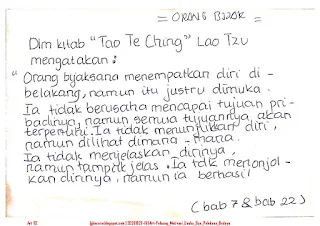 = ORANG BIJAK =
Dlm kitab "Tao Te Ching" Lao Tzu
mengatakan :
"Orang bijaksana menempatkan diri di -
belakang, namun itu justru dimuka.
Ia tidak berusaha mencapai tujuan pri-
badinya, namun semua tujuannya akan
terpenuhi. Ia tidak menunjukkan diri,
namun dilihat dimana - mana.
Ia tidak menjelaskan dirinya,
namun tampak jelas. Ia tdk menonjol-
kan dirinya, namun ia berhasil
(bab 7 & bab 22)